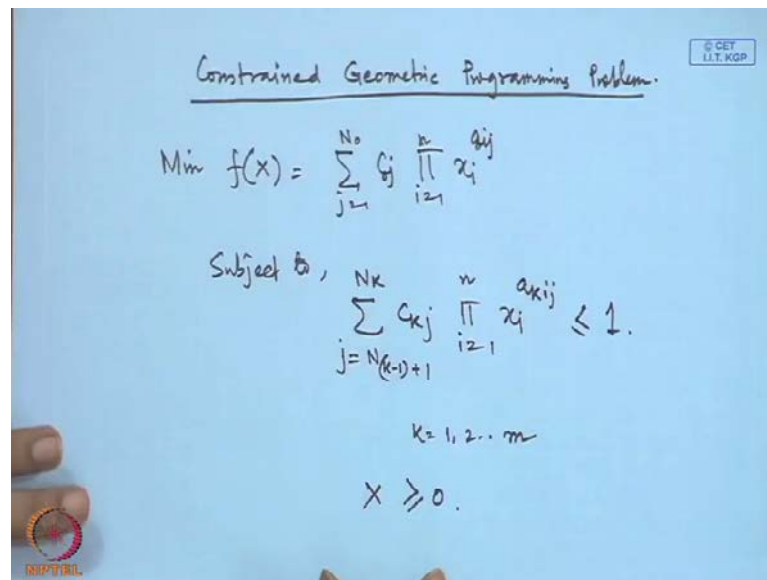 © CET
I.I.T. KGP
Constrained Geometric Programming Problem.
Min f(X) = ∑_{j=1}^{N₀} Cⱼ ∏_{i=1}^{n} xᵢ^{aij}
Subject to, ∑_{j=N(k-1)+1}^{Nk} C_{kj} ∏_{i=1}^{n} xᵢ^{akij} ≤ 1.
k = 1, 2.. m
X ≥ 0.
NPTEL